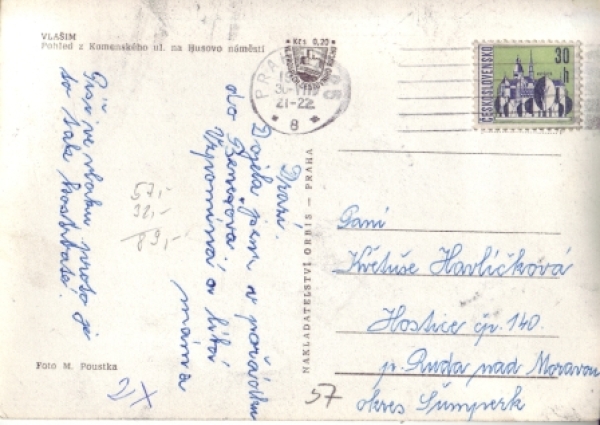 VLAŠIM
Pohled z Komenského ul. na Husovo náměstí
Kčs 0,20
PRAHA
21-22
8
ČESKOSLOVENSKO
30 h
Drazí.
Dojela jsem v pořádku
do Benešova.
Vzpomíná a líbá
máma
Píši ve vlaku proto je
to tak kostrbaté.
57,-
32,-
89,-
NAKLADATELSTVÍ ORBIS — PRAHA
Paní
Květuše Havlíčková
Hostice čp. 140.
p. Ruda nad Moravou
okres Šumperk
Foto M. Poustka
57